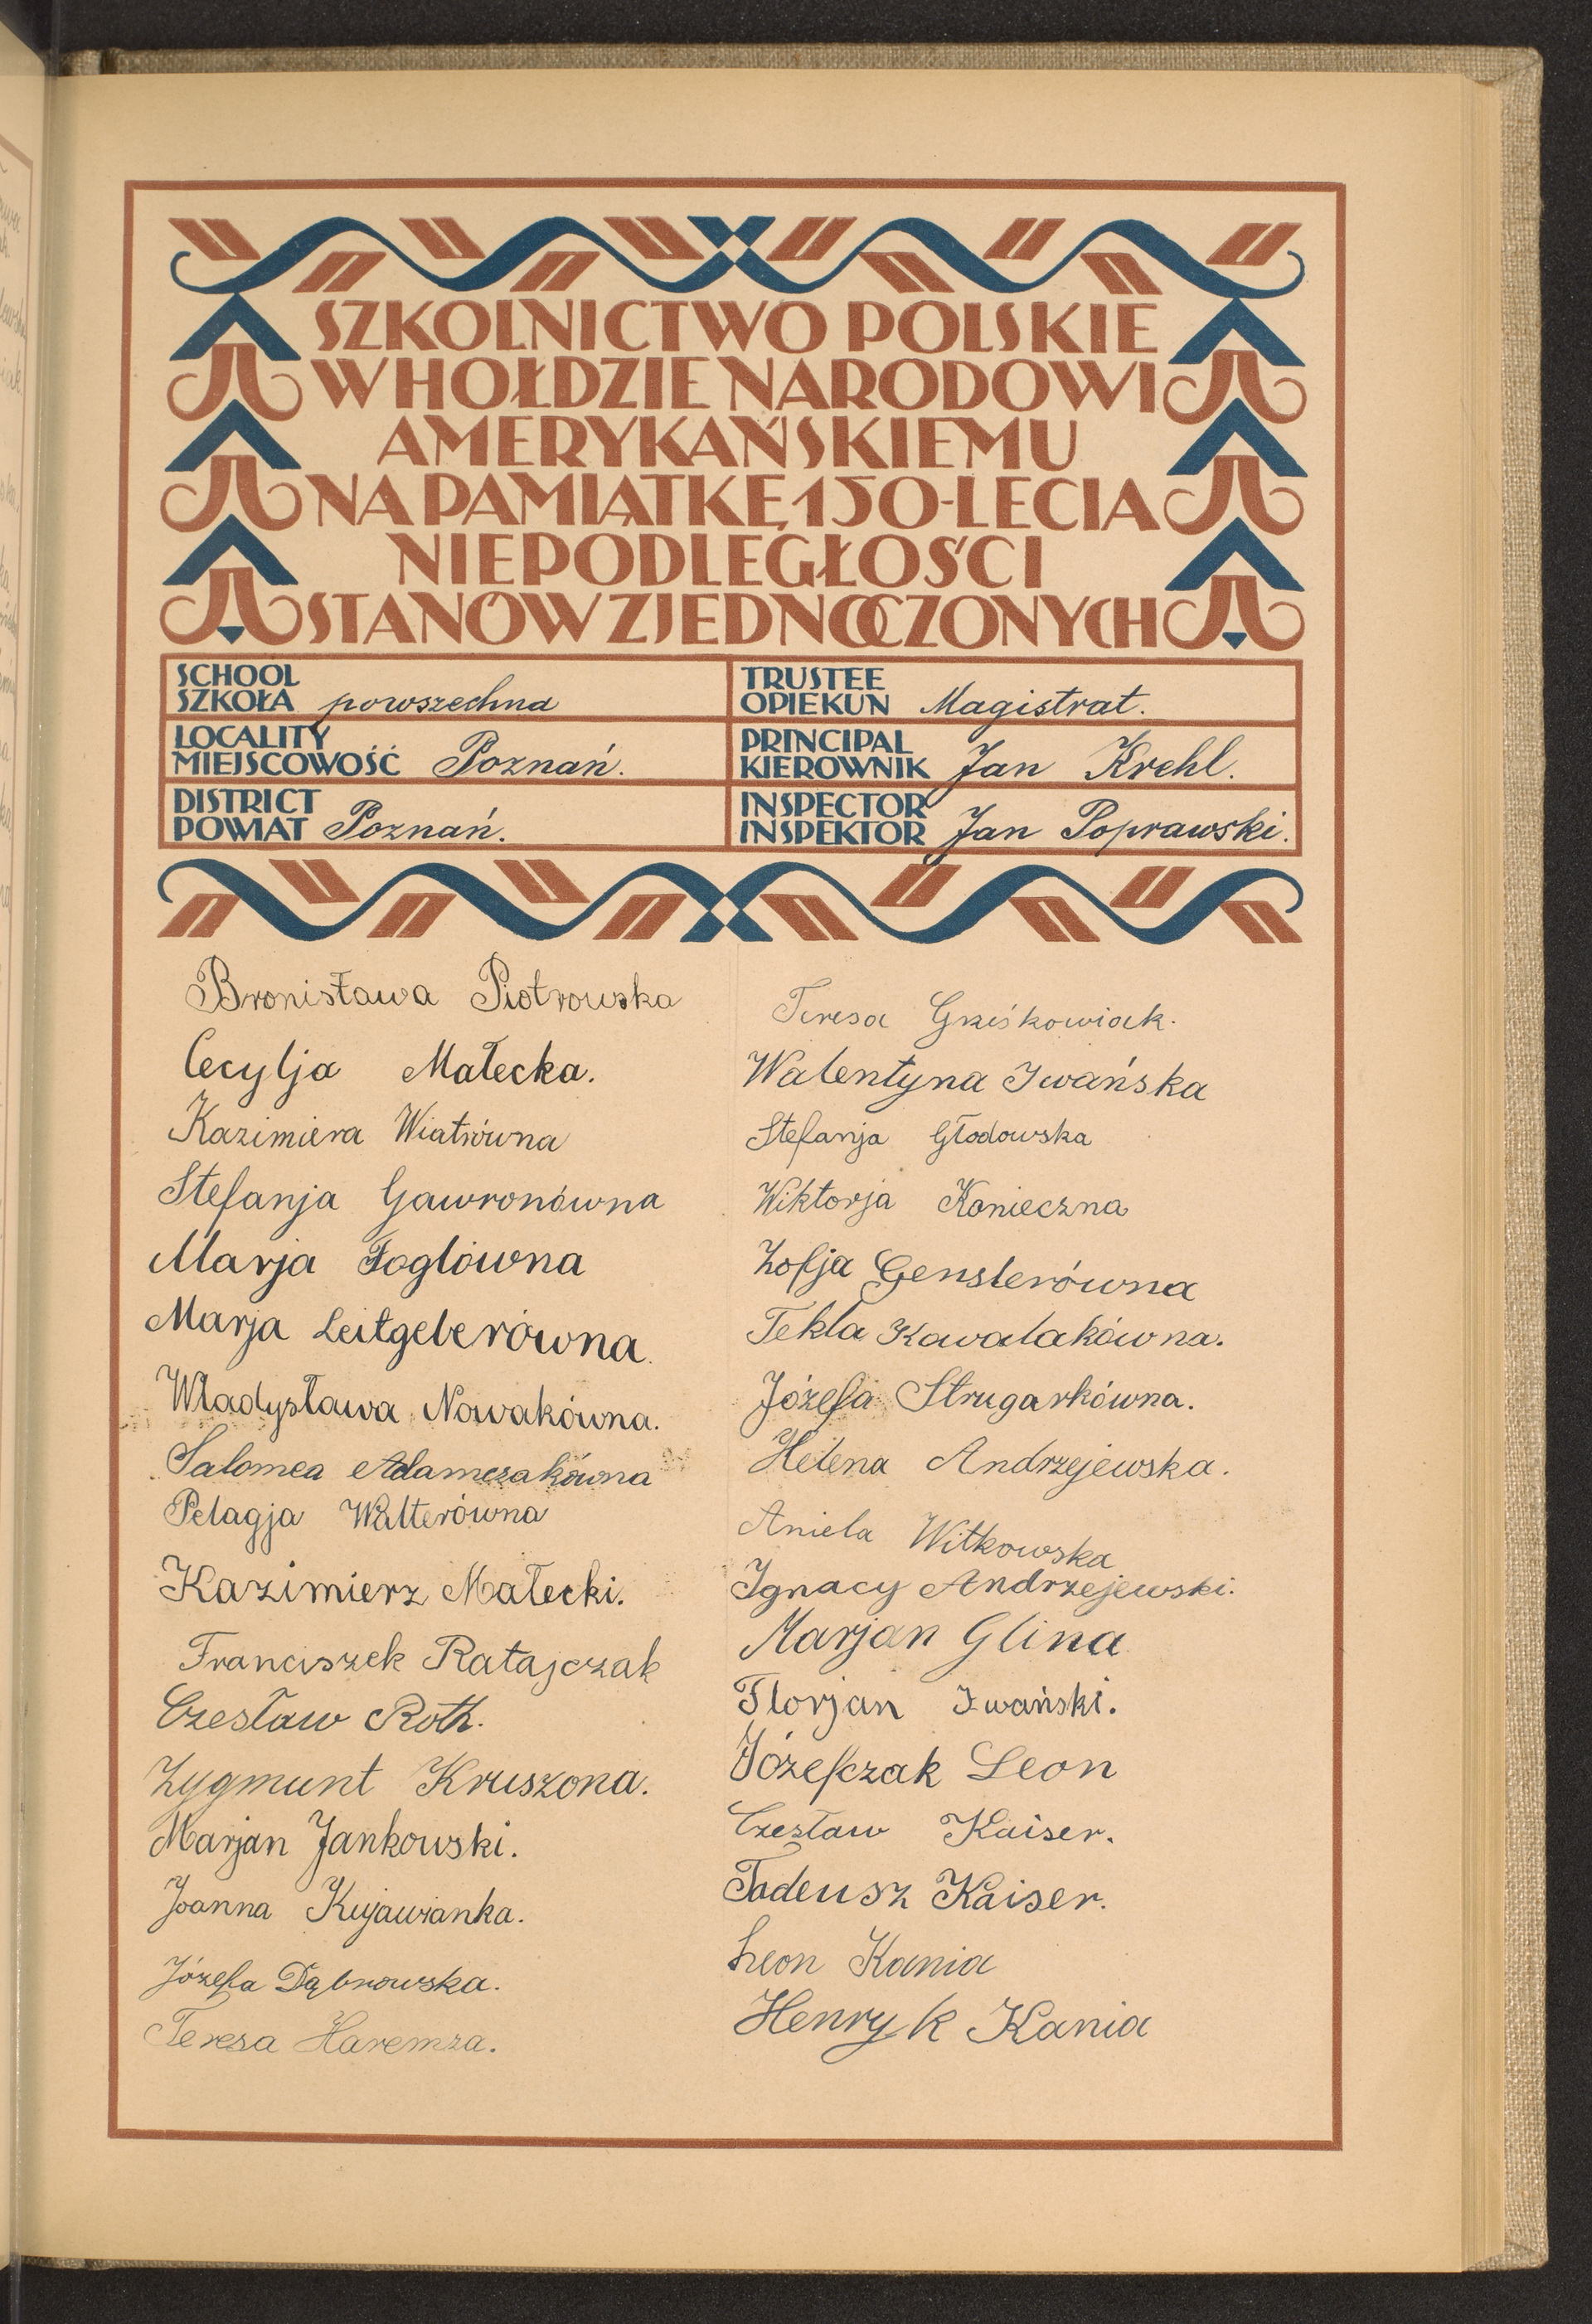 SZKOLNICTWO POLSKIE
W HOŁDZIE NARODOWI
AMERYKAŃSKIEMU
NA PAMIĄTKĘ 150-LECIA
NIEPODLEGŁOŚCI
STANÓW ZJEDNOCZONYCH
SCHOOL
SZKOŁA powszechna
LOCALITY
MIEJSCOWOŚĆ Poznań.
DISTRICT
POWIAT Poznań.
TRUSTEE
OPIEKUN Magistrat.
PRINCIPAL
KIEROWNIK Jan Krehl.
INSPECTOR
INSPEKTOR Jan Poprawski.
Bronisława Piotrowska
Cecylja Małecka.
Kazimiera Wiatrówna
Stefanja Gawronówna
Marja Foglówna
Marja Leitgeberówna.
Władysława Nowakówna.
Salomea Adamczakówna
Pelagja Walterówna
Kazimierz Małecki.
Franciszek Ratajczak
Czesław Roth.
Zygmunt Kruszona.
Marjan Jankowski.
Joanna Kujawianka.
Józefa Dąbrowska.
Teresa Haremza.
Teresa Grześkowiak.
Walentyna Iwańska
Stefanja Głodowska
Wiktorja Konieczna
Zofja Genslerówna
Tekla Kawalakówna.
Józefa Strugarkówna.
Helena Andrzejewska.
Aniela Witkowska
Ignacy Andrzejewski.
Marjan Glina
Florjan Iwański.
Józefczak Leon
Czesław Kaiser.
Tadeusz Kaiser.
Leon Kania
Henryk Kania